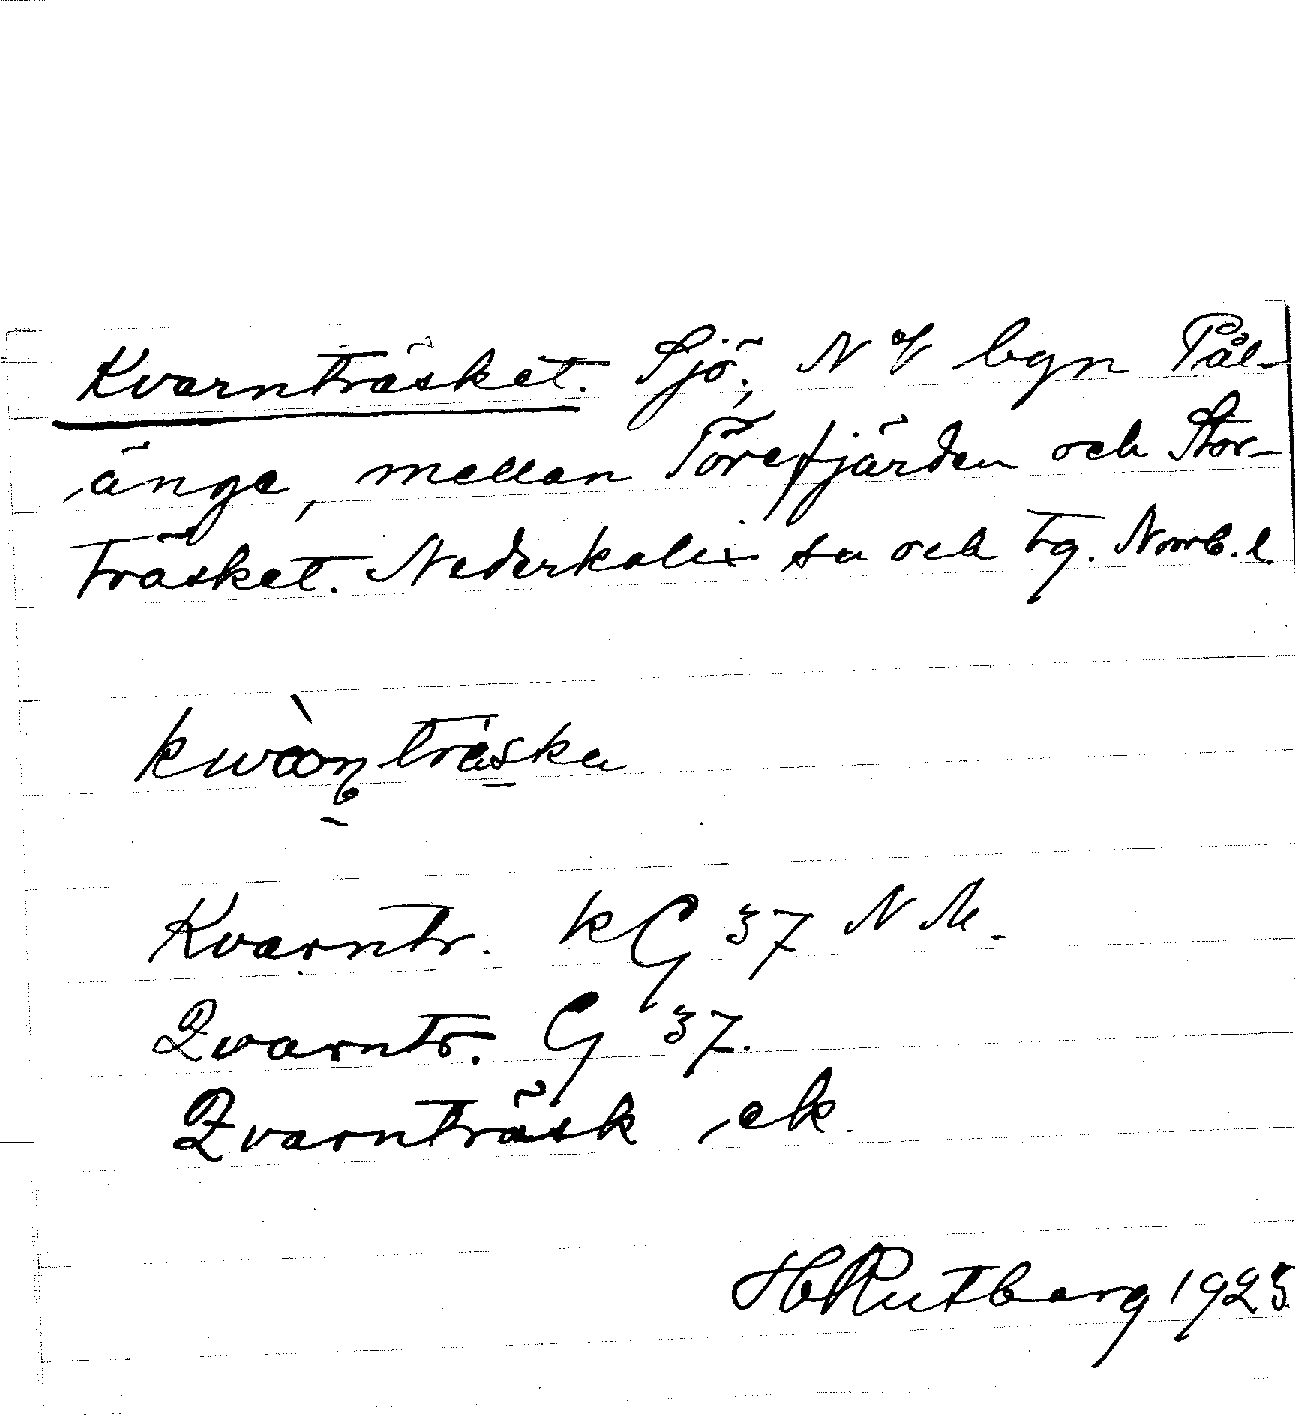 Kvarnträsket. Sjö, NV bgn Pål-
änge, mellan Törefjärden och Stor-
träsket. Nederkalix sn och tg. Norrb. l.
Kvarntr. kG 37 NM.
Qvarntr. G 37.
Qvarnträsk ek
H Rutberg 1925